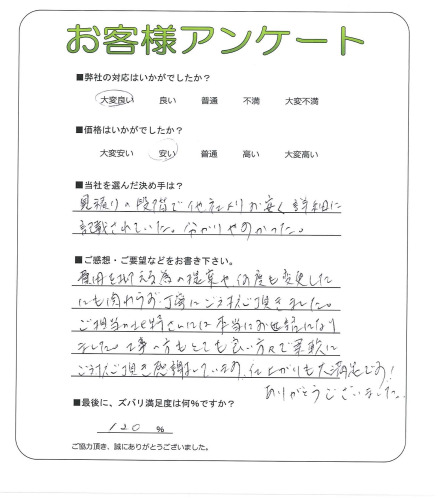 お客様アンケート
■弊社の対応はいかがでしたか？
大変良い 良い 普通 不満 大変不満
■価格はいかがでしたか？
大変安い 安い 普通 高い 大変高い
■当社を選んだ決め手は？
見積りの段階で他社よりお安く詳細に
記載されていた。分かりやすかった。
■ご感想・ご要望などをお書き下さい。
費用を抑える為の提案や何度も変更した
にも関わらずお丁寧にご対応頂きました。
ご担当の さんには本当にお世話になり
ました。工事の方もとても良い方々で柔軟に
ご対応頂き感謝しています。仕上がりも大満足です！
ありがとうございました。
■最後に、ズバリ満足度は何％ですか？
120 %
ご協力頂き、誠にありがとうございました。